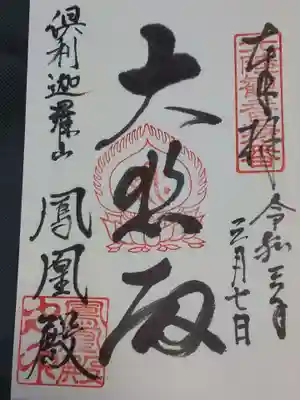 奉拝 令和三年
三月七日
大悲殿
倶利迦羅山 鳳凰殿